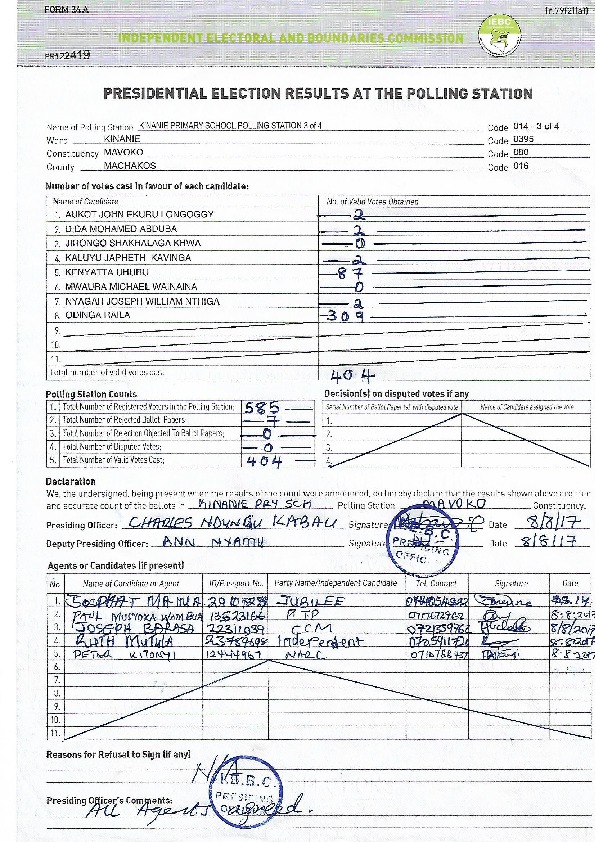 FORM 34A
INDEPENDENT ELECTORAL AND BOUNDARIES COMMISSION
IEBC
PR122419
PRESIDENTIAL ELECTION RESULTS AT THE POLLING STATION
Name of Polling Station KINANIE PRIMARY SCHOOL POLLING STATION 3 of 4 Code 014 - 3 of 4
Ward KINANIE Code 0395
Constituency MAVOKO Code 080
County MACHAKOS Code 016
Number of votes cast in favour of each candidate:
Name of Candidate No. of Valid Votes Obtained
1. AUKOT JOHN EKURU LONGOGGY 2
2. DIDA MOHAMED ABDUBA 2
3. JIRONGO SHAKHALAGA KHWA 0
4. KALUYU JAPHETH KAVINGA 2
5. KENYATTA UHURU 87
6. MWAURA MICHAEL WAINAINA 0
7. NYAGAH JOSEPH WILLIAM NTHIGA 2
8. ODINGA RAILA 309
9.
10.
11.
Total number of valid votes cast 404
Polling Station Counts Decision(s) on disputed votes if any
1. Total Number of Registered Voters in the Polling Station: 585
2. Total Number of Rejected Ballot Papers 7
3. Total Number of Rejection Objected To Ballot Papers; 0
4. Total Number of Disputed Votes; 0
5. Total Number of Valid Votes Cast; 404
Serial Number of Ballot Paper(s) with disputed vote Name of Candidate assigned the vote
1.
2.
3.
4.
Declaration
We, the undersigned, being present when the results of the count were announced, do hereby declare that the results shown above are true
and accurate count of the ballots in KINANIE PRY SCH Polling Station MAVOKO Constituency.
Presiding Officer: CHARLES NDUNGU KABAU Signature Date 8/8/17
Deputy Presiding Officer: ANN NYAMU Signature Date 8/8/17
Agents or Candidates (if present)
No Name of Candidate or Agent ID/Passport No. Party Name/Independent Candidate Tel. Contact Signature Date
1. JUBILEE
2. PAUL MUSYOKA WAMBUA 13523166 8.8.2017
3. JOSEPH BARASA 22311039 8/8/2017
4. RUTH MUTULA Independent
5. PETER 12444967 NARC
6.
7.
8.
9.
10.
11.
Reasons for Refusal to Sign (if any)
N/A
I.E.B.C.
PRESIDING
Presiding Officer's Comments:
All Agents signed.